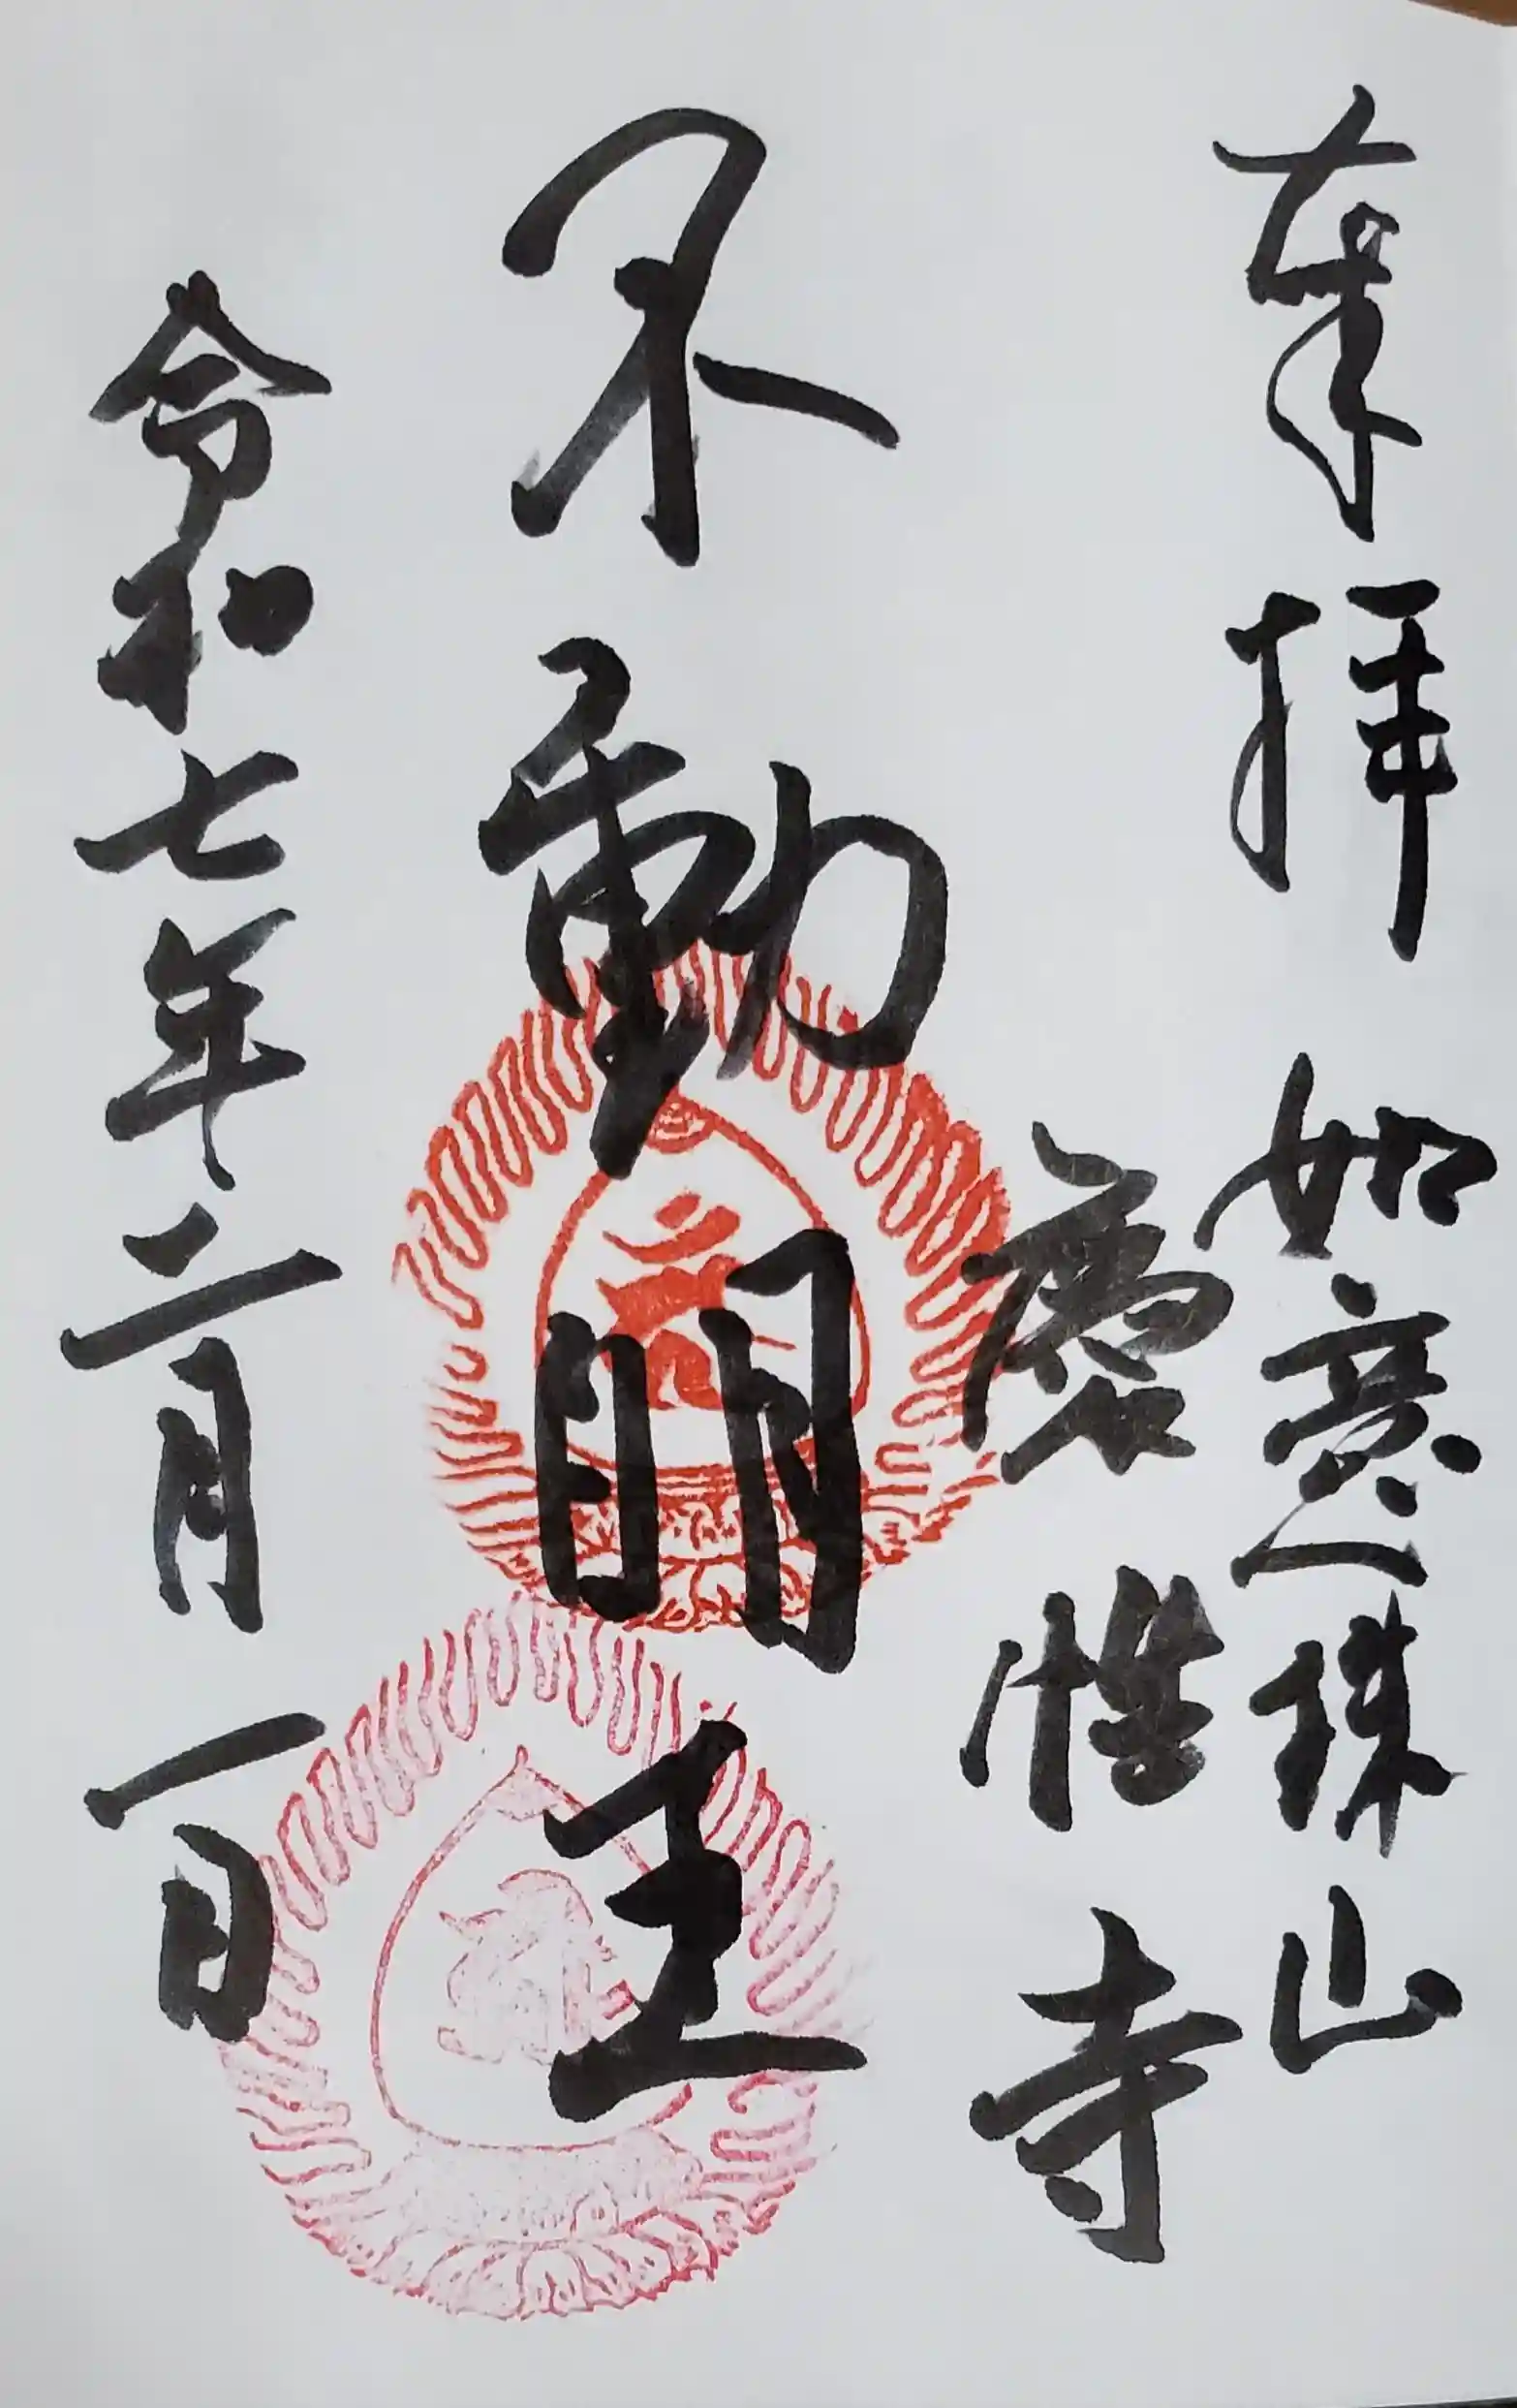 奉拝　如意珠山
慶性寺
不動明王
令和七年二月一日